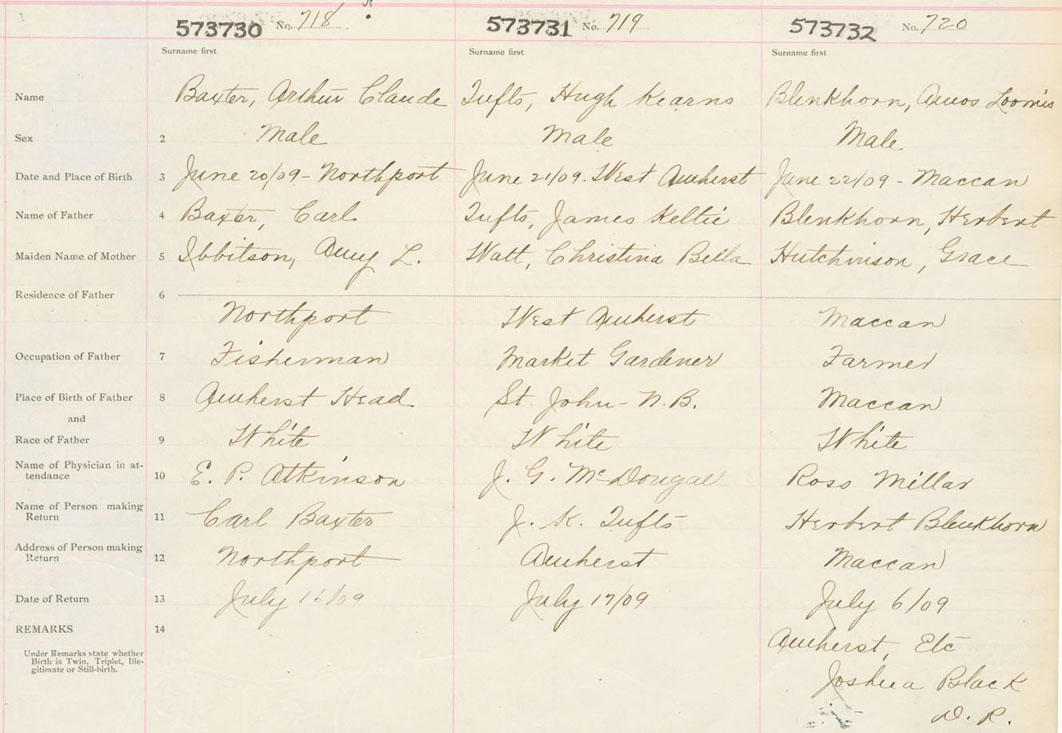 573730 No. 718 573731 No. 719 573732 No. 720
Surname first Surname first Surname first
Name Baxter, Arthur Claude Tufts, Hugh Kearns Blenkhorn, Amos Loomis
Sex 2 Male Male Male
Date and Place of Birth 3 June 20/09 - Northport June 21/09. West Amherst June 22/09 - Maccan
Name of Father 4 Baxter, Carl Tufts, James Keltie Blenkhorn, Herbert
Maiden Name of Mother 5 Ibbitson, Amy L. Watt, Christina Bella Hutchinson, Grace
Residence of Father 6
Northport West Amherst Maccan
Occupation of Father 7 Fisherman Market Gardener Farmer
Place of Birth of Father 8 Amherst Head St. John - N.B. Maccan
and
Race of Father 9 White White White
Name of Physician in at-
tendance 10 E. P. Atkinson J. G. McDougall Ross Millar
Name of Person making
Return 11 Carl Baxter J. K. Tufts Herbert Blenkhorn
Address of Person making
Return 12 Northport Amherst Maccan
Date of Return 13 July 16/09 July 17/09 July 6/09
REMARKS 14
Amherst, Etc
Under Remarks state whether
Birth is Twin, Triplet, Ille-
gitimate or Still-birth.
Joshua Black
D. R.